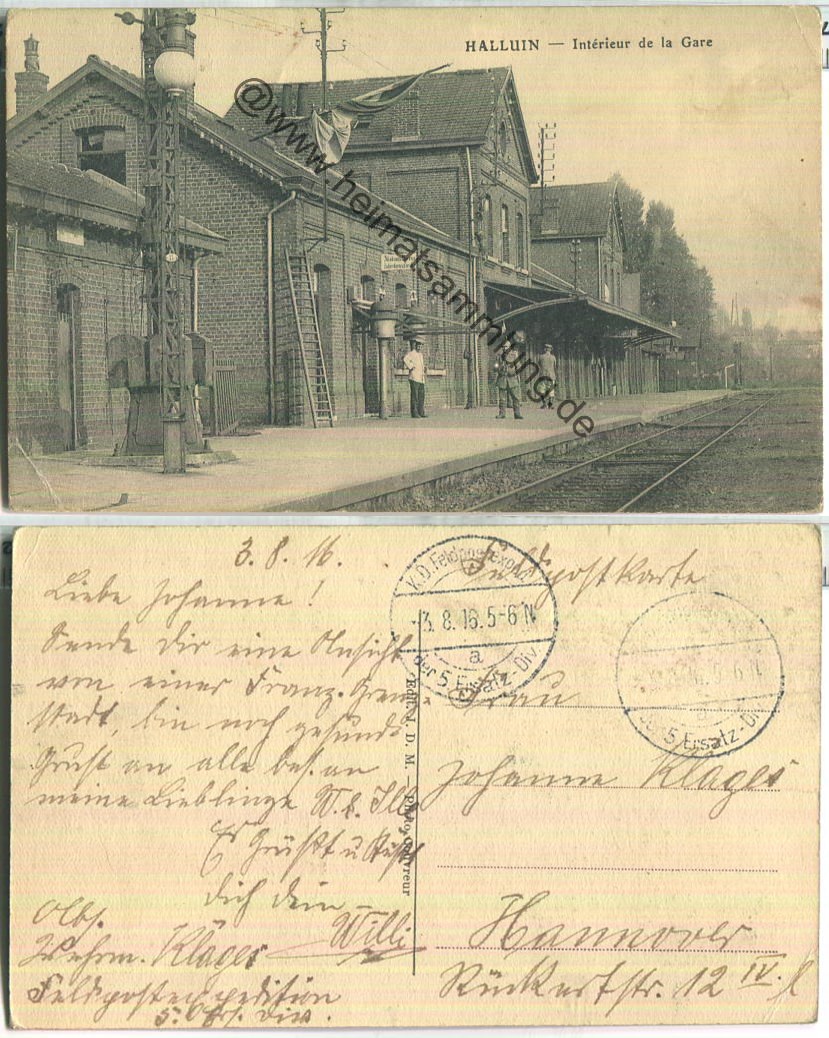 HALLUIN — Intérieur de la Gare
@www.heimatsammlung.de
3. 8. 16.
Feldpostkarte
Liebe Johanne!
Sende dir eine Ansicht
von einer Franz. Grenz-
stadt, bin noch gesund.
Gruß an alle bes. an
meine Lieblinge W. u. Ilse
Es Grüßt u Küßt
dich dein
Willi
Abs.
Wehrm. Klages
Feldpostexpedition
5. Ers. Div.
K.D. Feldpostexped.
3. 8. 16. 5-6 N
a
der 5. Ersatz-Div.
5-6 N
der 5. Ersatz-Div.
Edit. J. D. M. — Photo Couvreur
Frau
Johanne Klages
Hannover
Rückertstr. 12 IV. l